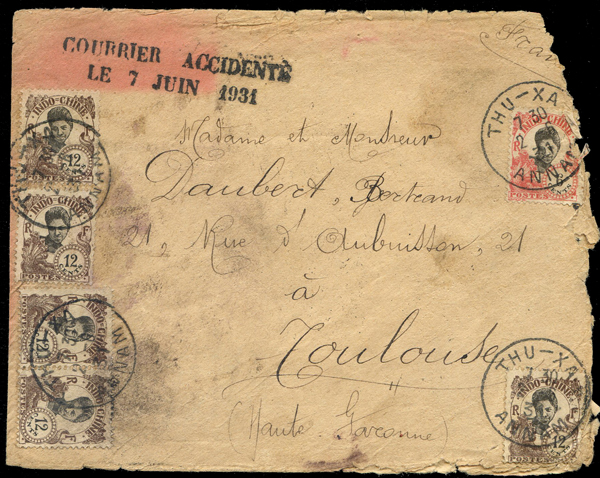 COURRIER ACCIDENTÉ
LE 7 JUIN 1931
Madame et Monsieur
Daubert, Bertrand
21, Rue d'Aubuisson, 21
à
Toulouse
(Haute-Garonne)
THU-XA
7 30
ANNAM
INDO-CHINE
R F
POSTES
INDO-CHINE
R F
12
INDO-CHINE
R F
POSTES
12
INDO-CHINE
R F
POSTES
12
INDO-CHINE
R F
POSTES
12
THU-XA
ANNAM
THU-XA
7 30
ANNAM
INDO-CHINE
R
POSTES
12